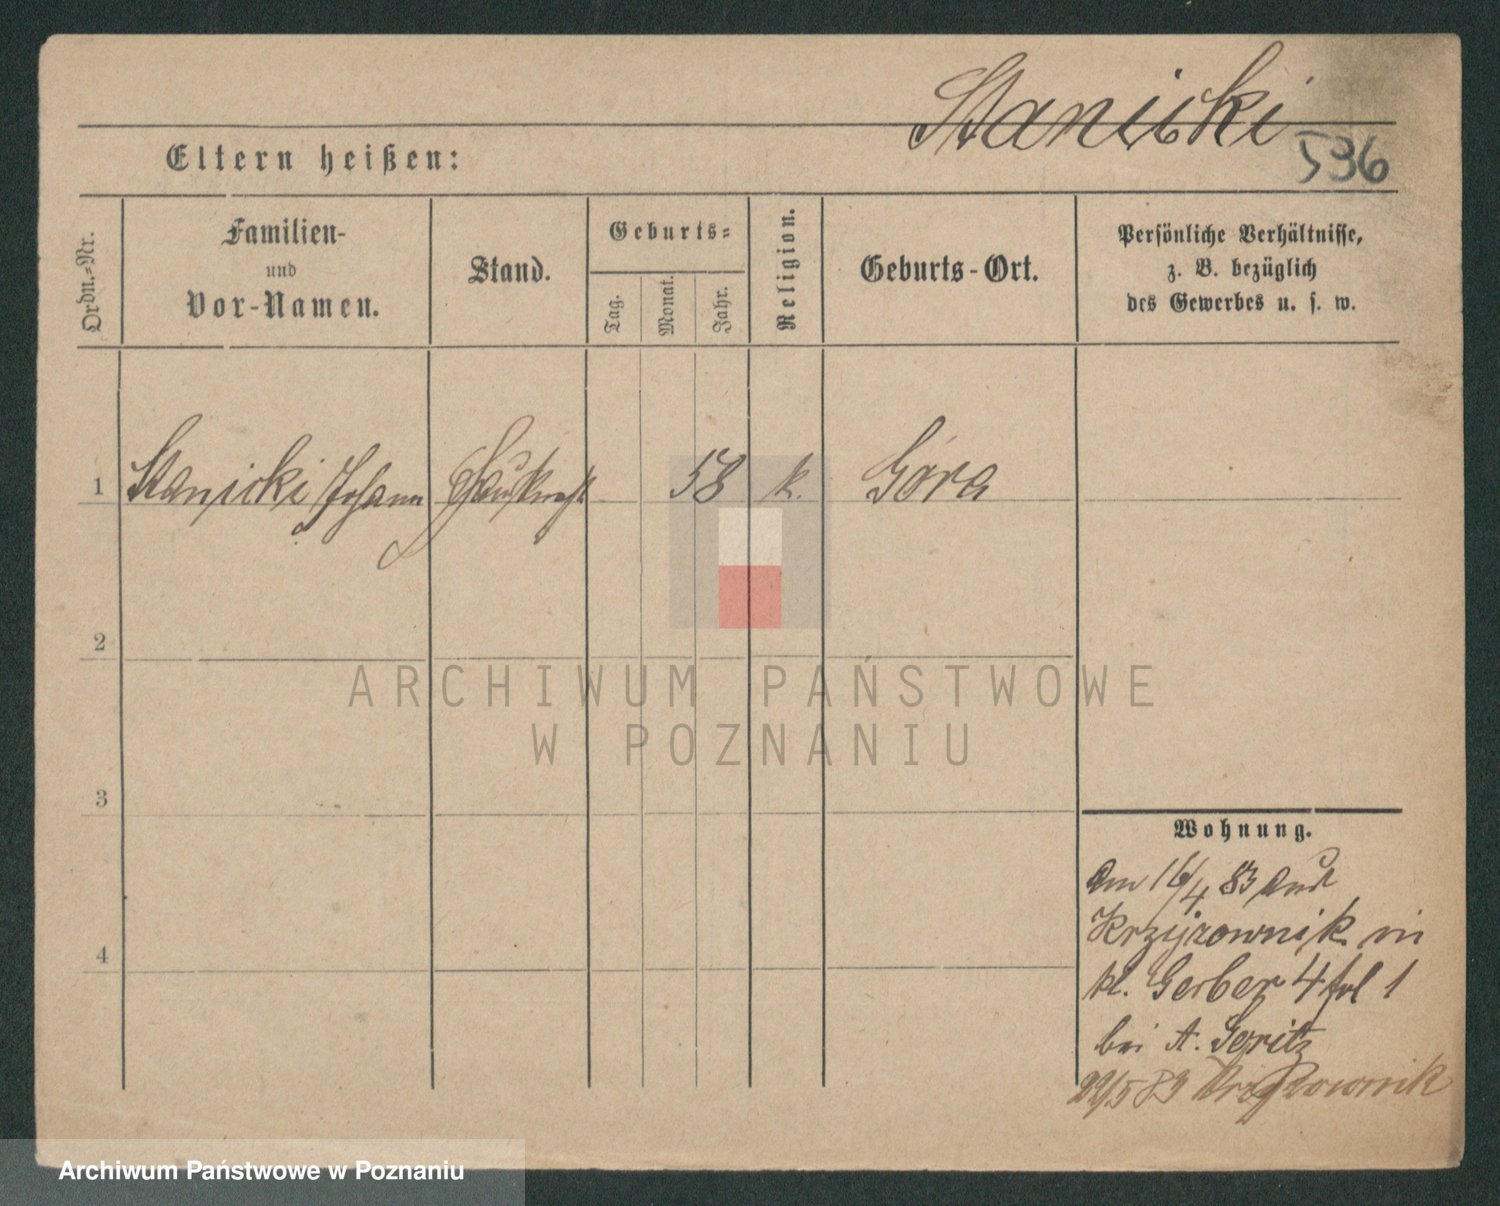 Stanicki
536
Eltern heißen:
Ordn.=Nr.
Familien-
und
Vor-Namen.
Stand.
Geburts=
Tag.
Monat.
Jahr.
Religion.
Geburts-Ort.
Persönliche Verhältnisse,
z. B. bezüglich
des Gewerbes u. s. w.
1 Stanicki Johann 58 k. Góra
2
3
4
Wohnung.
am 16/4 83 aus
Krzyzownik in
kl. Gerber 4 1
bei A.
22/5 83 Krzyzownik
ARCHIWUM PAŃSTWOWE
W POZNANIU
Archiwum Państwowe w Poznaniu